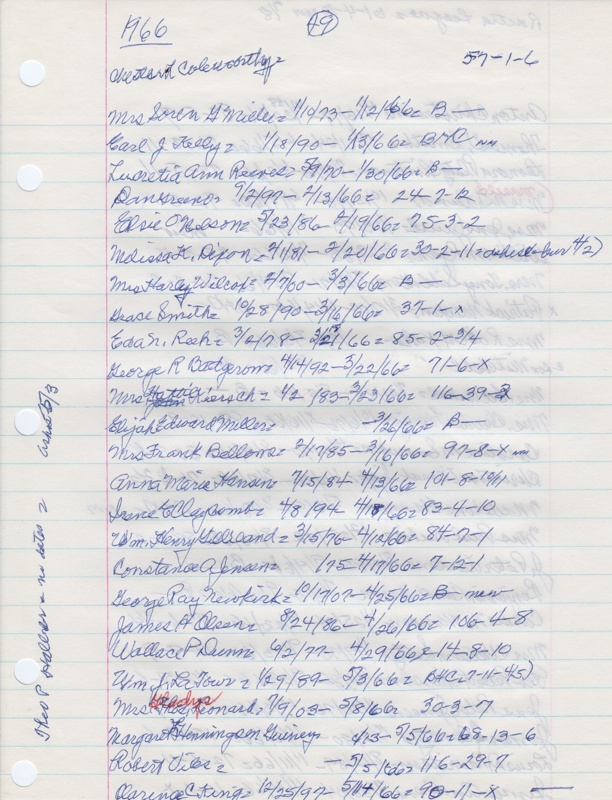 1966 49
Colsworthy = 57-1-6
Mrs Soren H Miller = 1/19/73 - 1/12/66 = B -
Earl J. Kelly = 1/18/90 - 1/13/66 = BMC nm
Lucretia Ann Reeves = 5/9/70 - 1/30/66 = B -
Dan Greeno = 9/2/97 - 2/13/66 = 24-7-12
Elsie O Nelson = 5/23/86 - 2/19/66 = 75-3-2
Melissa K. Dixon = 2/1/81 - 2/20/66 = 30-2-11 = #2)
Mrs Harley Wilcox = 2/7/00 - 3/3/66 = B -
Smith = 10/28/90 - 3/16/66 = 37-1-x
Eda N. Roeh = 3/2/78 - 3/21/66 = 85-2-3/4
George R Bodgrom = 4/14/92 - 3/22/66 = 71-6-x
Mrs Hattie Kiersch = 1/2 /83 - 3/23/66 = 116-39-
Elijah Edward Miller = - 3/26/66 = B -
Mrs Frank Bellows = 2/17/85 - 3/16/66 = 97-8-x nm
Anna Marie Hansen = 7/15/84 4/13/66 = 101-8-10/11
Irene E Claycomb = 4/8/94 4/ /66 = 83-4-10
Wm. Henry Gilliland = 3/15/76 - 4/12/66 = 84-7-1
Constance A Jensen = /75 - 4/17/66 = 7-12-1
George Ray Newkirk = 10/17/07 - 4/25/66 = B - new
James A Olsen = 8/24/86 - 4/26/66 = 106-4-8
Wallace P Dunn = 10/2/77 - 4/29/66 = 14-8-10
Wm. J. La Tour = 1/29/89 - 5/3/66 = B+C = 7-11-45)
Mrs Gladys Leonard = 7/9/03 - 5/8/66 = 30-3-17
Margaret Henningson Gurney 4/13 - 5/5/66 = 68-13-6
Robert Viles = - 5/5/66 = 116-29-7
Clarence C King = 12/25/97 - 5/14/66 = 90-11-x -
Theo P Halloran = no dates = ashes 5/3